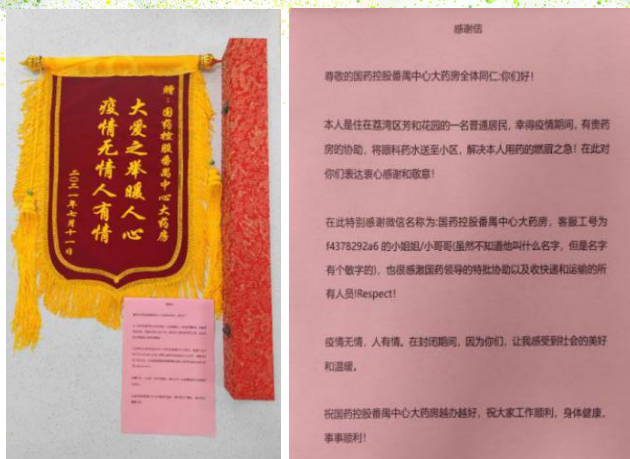 赠：国药控股番禺中心大药房
大爱之举暖人心
疫情无情人有情
二〇二一年七月十一日
感谢信
尊敬的国药控股番禺中心大药房全体同仁:你们好！
本人是住在荔湾区芳和花园的一名普通居民，幸得疫情期间，有贵药
房的协助，将眼科药水送至小区，解决本人用药的燃眉之急！在此对
你们表达衷心感谢和敬意！
在此特别感谢微信名称为:国药控股番禺中心大药房，客服工号为
f4378292a6 的小姐姐/小哥哥(虽然不知道他叫什么名字，但是名字
有个敏字的)，也很感激国药领导的特批协助以及收快递和运输的所
有人员!Respect！
疫情无情，人有情。在封闭期间，因为你们，让我感受到社会的美好
和温暖。
祝国药控股番禺中心大药房越办越好，祝大家工作顺利，身体健康，
事事顺利！